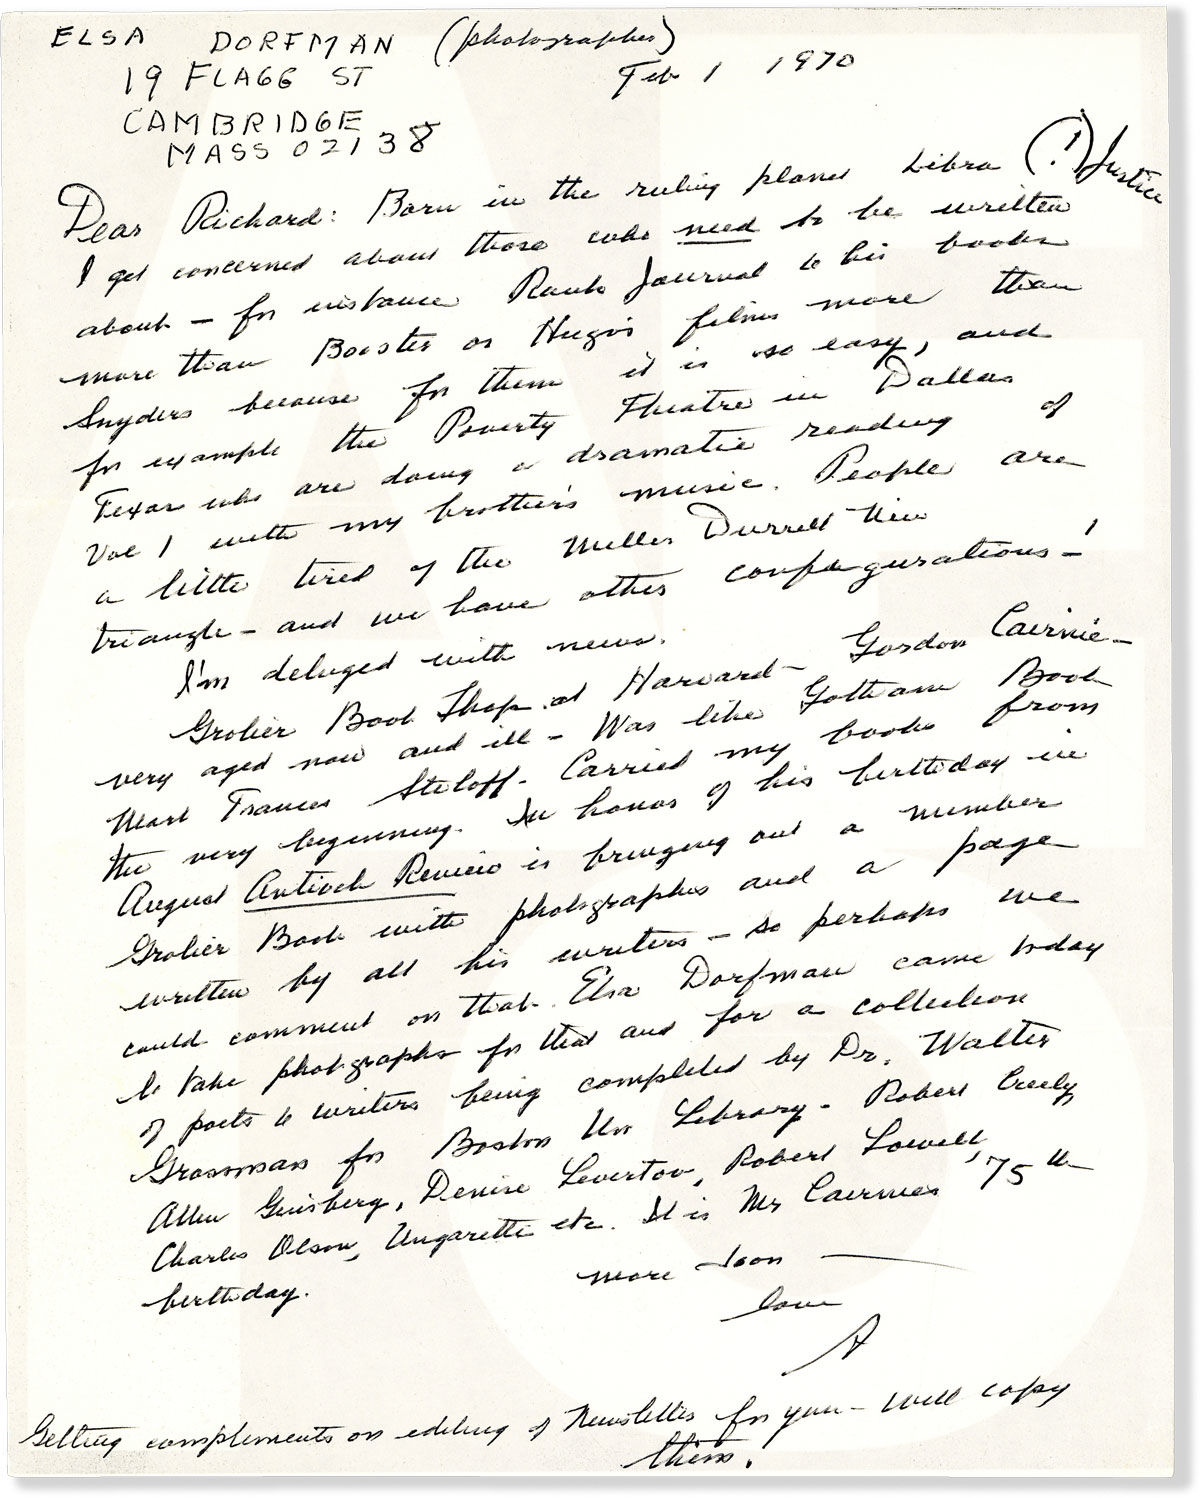 ELSA DORFMAN (photographer)
19 FLAGG ST
Feb 1 1970
CAMBRIDGE
MASS 02138
Dear Richard: Born in the ruling planet Libra (!) Justice
I get concerned about those who need to be written
about - for instance Rank Journal to his books
more than Booster or Hugo's films more than
Snyders because for them it is so easy, and
for example the Poverty Theatre in Dallas
Texas who are doing a dramatic reading of
Vol 1 with my brother's music. People are
a little tired of the Miller Durrell Nin
triangle - and we have other configurations - !
I'm deluged with news.
Grolier Book Shop at Harvard - Gordon Cairnie -
very aged now and ill - Was like Gotham Book
Mart Frances Steloff - Carried my books from
the very beginning. In honor of his birthday in
August Antioch Review is bringing out a number
Grolier Book with photographs and a page
written by all his writers - so perhaps we
could comment on that. Elsa Dorfman came today
to take photographs for that and for a collection
of poets & writers being completed by Dr. Walter
Grossman for Boston Un Library - Robert Creely,
Allen Ginsberg, Denise Levertov, Robert Lowell,
Charles Olson, Ungaretti etc. It is Mr Cairnies '75th
birthday.
more soon
love
A
Getting compliments on editing of Newsletter for you - will copy
them.